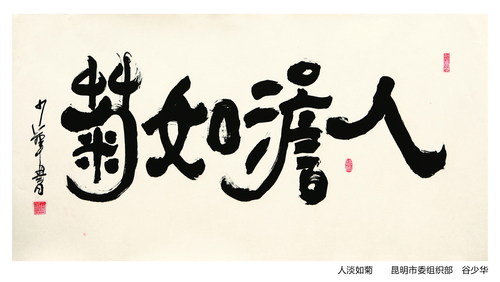 人澹如菊
少華書
人淡如菊 昆明市委组织部 谷少华